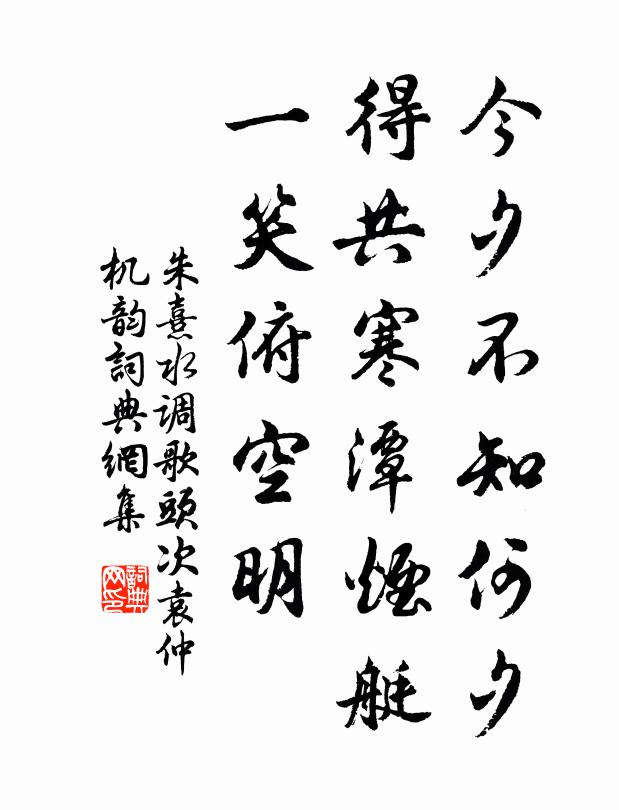 今夕不知何夕
得共寒潭煙艇
一笑俯空明
朱熹水调歌頭次袁仲
机韵詞典網集
詞典网印